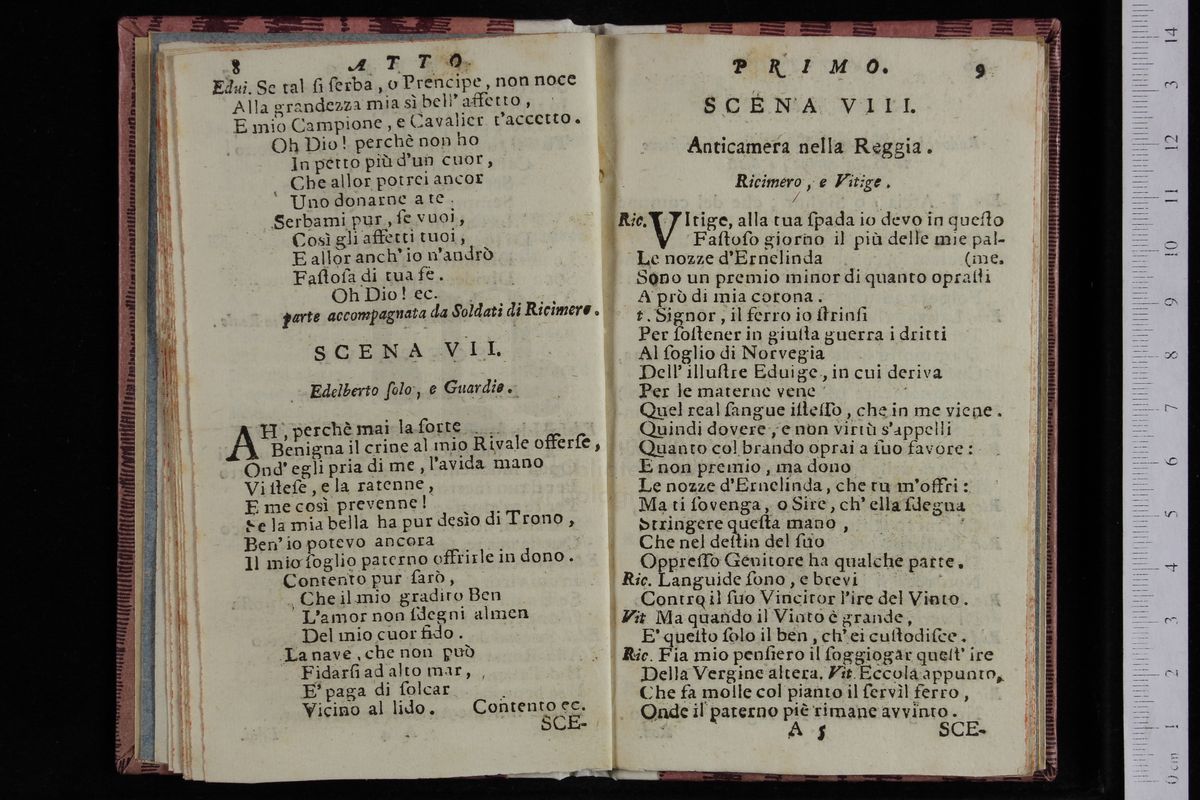 8 ATTO
Edui. Se tal si serba, o Prencipe, non noce
Alla grandezza mia sì bell' affetto,
E mio Campione, e Cavalier t'accetto.
Oh Dio! perchè non ho
In petto più d'un cuor,
Che allor potrei ancor
Uno donarne a te.
Serbami pur, se vuoi,
Così gli affetti tuoi,
E allor anch' io n'andrò
Fastosa di tua fè.
Oh Dio! ec.
parte accompagnata da Soldati di Ricimero.
SCENA VII.
Edelberto solo, e Guardie.
AH, perchè mai la sorte
Benigna il crine al mio Rivale offerse,
Ond' egli pria di me, l'avida mano
Vi stese, e la ratenne,
E me così prevenne!
Se la mia bella ha pur desìo di Trono,
Ben' io potevo ancora
Il mio soglio paterno offrirle in dono.
Contento pur sarò,
Che il mio gradito Ben
L'amor non sdegni almen
Del mio cuor fido.
La nave, che non può
Fidarsi ad alto mar,
E' paga di solcar
Vicino al lido. Contento ec.
SCE-
PRIMO. 9
SCENA VIII.
Anticamera nella Reggia.
Ricimero, e Vitige.
Ric. VItige, alla tua spada io devo in questo
Fastoso giorno il più delle mie pal-
Le nozze d'Ernelinda (me.
Sono un premio minor di quanto oprasti
A prò di mia corona.
t. Signor, il ferro io strinsi
Per sostener in giusta guerra i dritti
Al soglio di Norvegia
Dell' illustre Eduige, in cui deriva
Per le materne vene
Quel real sangue istesso, che in me viene.
Quindi dovere, e non virtù s'appelli
Quanto col brando oprai a suo favore:
E non premio, ma dono
Le nozze d'Ernelinda, che tu m'offri:
Ma ti sovenga, o Sire, ch' ella sdegna
Stringere questa mano,
Che nel destin del suo
Oppresso Genitore ha qualche parte.
Ric. Languide sono, e brevi
Contro il suo Vincitor l'ire del Vinto.
Vit Ma quando il Vinto è grande,
E' questo solo il ben, ch' ei custodisce.
Ric. Fia mio pensiero il soggiogar quest' ire
Della Vergine altera. Vit. Eccola appunto,
Che fa molle col pianto il servìl ferro,
Onde il paterno piè rimane avvinto.
A 5 SCE-
0 cm 1 2 3 4 5 6 7 8 9 10 11 12 13 14